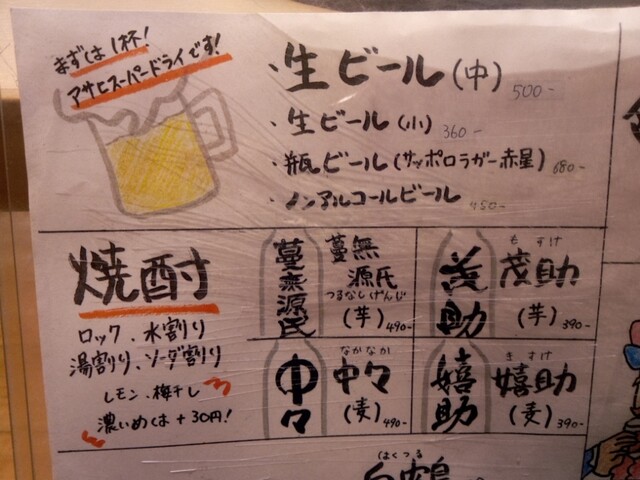 まずは1杯!
アサヒスーパードライです!
・生ビール(中) 500-
・生ビール(小) 360-
・瓶ビール(サッポロラガー赤星) 680-
・ノンアルコールビール 450-
焼酎
ロック、水割り
湯割り、ソーダ割り
レモン、梅干し
濃いめは+30円!
蔓無源氏
蔓無
源氏
つるなしげんじ
(芋) 490-
茂助
もすけ
茂助
(芋) 390-
中々
なかなか
中々
(麦) 490-
嬉助
きすけ
嬉助
(麦) 390-
はくつる
白鶴